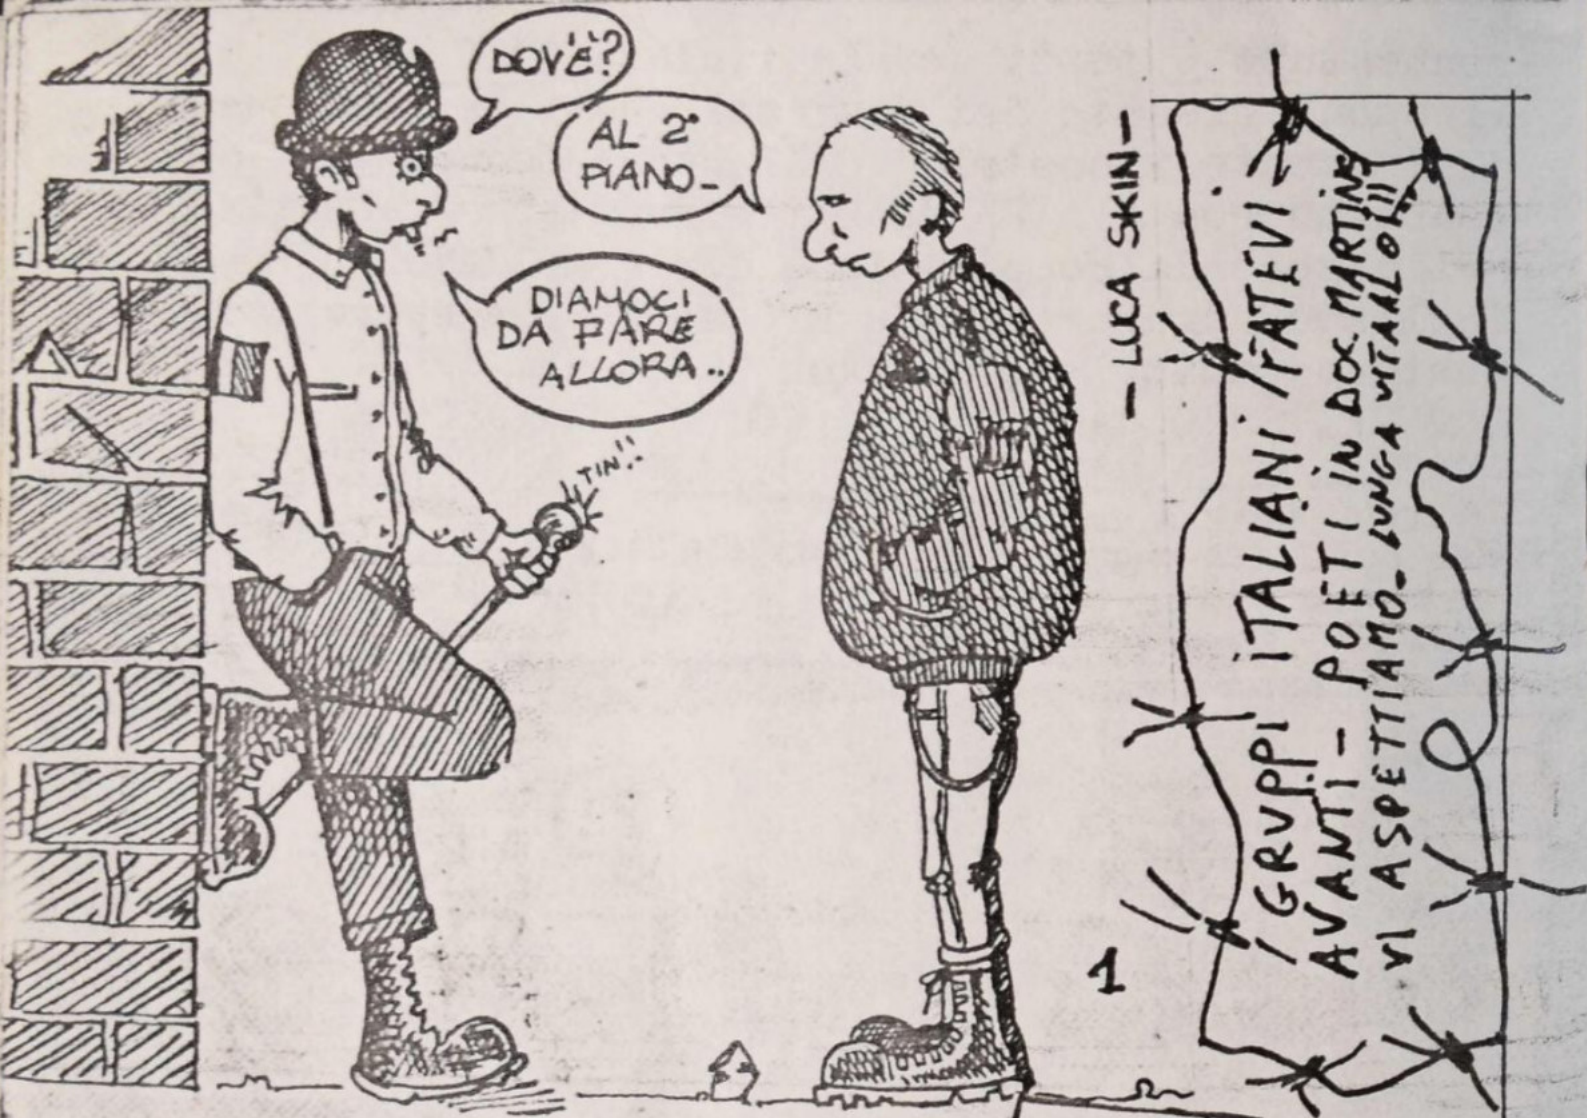 DOV'È?
AL 2°
PIANO_
DIAMOCI
DA FARE
ALLORA..
TIN!!
- LUCA SKIN -
I GRUPPI ITALIANI FATEVI
AVANTI - POETI IN DOC MARTINS
VI ASPETTIAMO_ LUNGA VITA AL OI!!
1